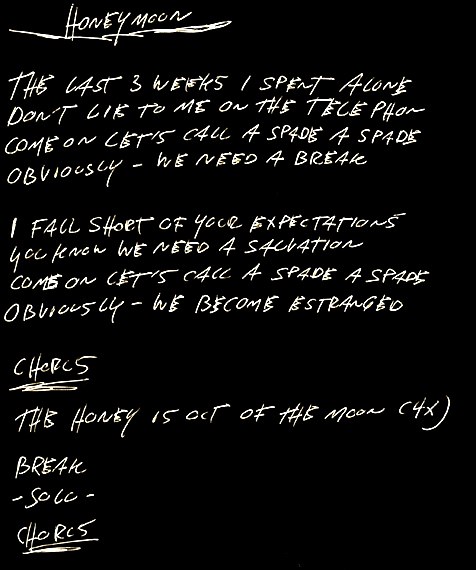 HONEYMOON
THE LAST 3 WEEKS I SPENT ALONE
DON'T LIE TO ME ON THE TELEPHON
COME ON LET'S CALL A SPADE A SPADE
OBVIOUSLY - WE NEED A BREAK
I FALL SHORT OF YOUR EXPECTATIONS
YOU KNOW WE NEED A SALVATION
COME ON LET'S CALL A SPADE A SPADE
OBVIOUSLY - WE BECOME ESTRANGED
CHORUS
THE HONEY IS OUT OF THE MOON (4X)
BREAK
- SOLO -
CHORUS